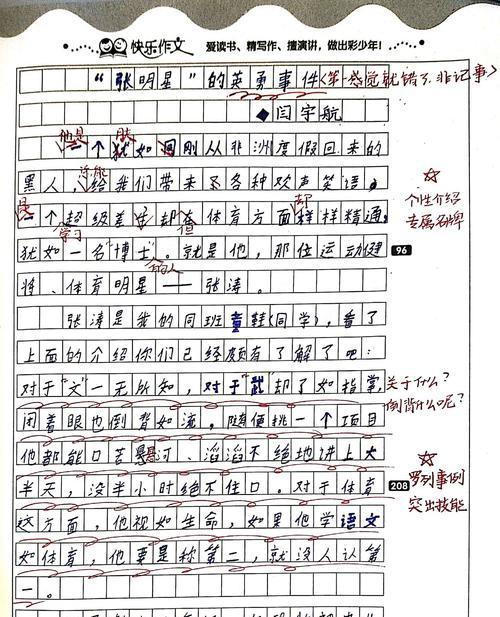 快乐作文 爱读书、精写作、擅演讲，做出彩少年！
“张明星”的英勇事件(第一感觉就错了，非记事)
◆闫宇航
他是 肤
一个犹如回刚从非洲度假回来的
黑人，给我们带来各种欢声笑语，
总能
是一个超级差 却在体育方面样样精通，
学习 但 却
犹如一名“博士”。就是他，那位运动健
的人
将、体育明星——张涛。
张涛是我的同班童鞋(同学)，看了
上面的介绍你们已经颇有了解了吧：
对于“文”一无所知，对于“武”却了如指掌，
闭着眼也倒背如流。随便挑一个项目
他都能口若悬河、滔滔不绝地讲上大
半天，没半小时绝不住口。对于体育
这方面，他视如生命，如果他学语文
如体育，他要是称第二，就没人认第
一。
☆
个性介绍
专属名牌
96
关于什么？
倒背什么呢？
☆
罗列事例
突出技能
208